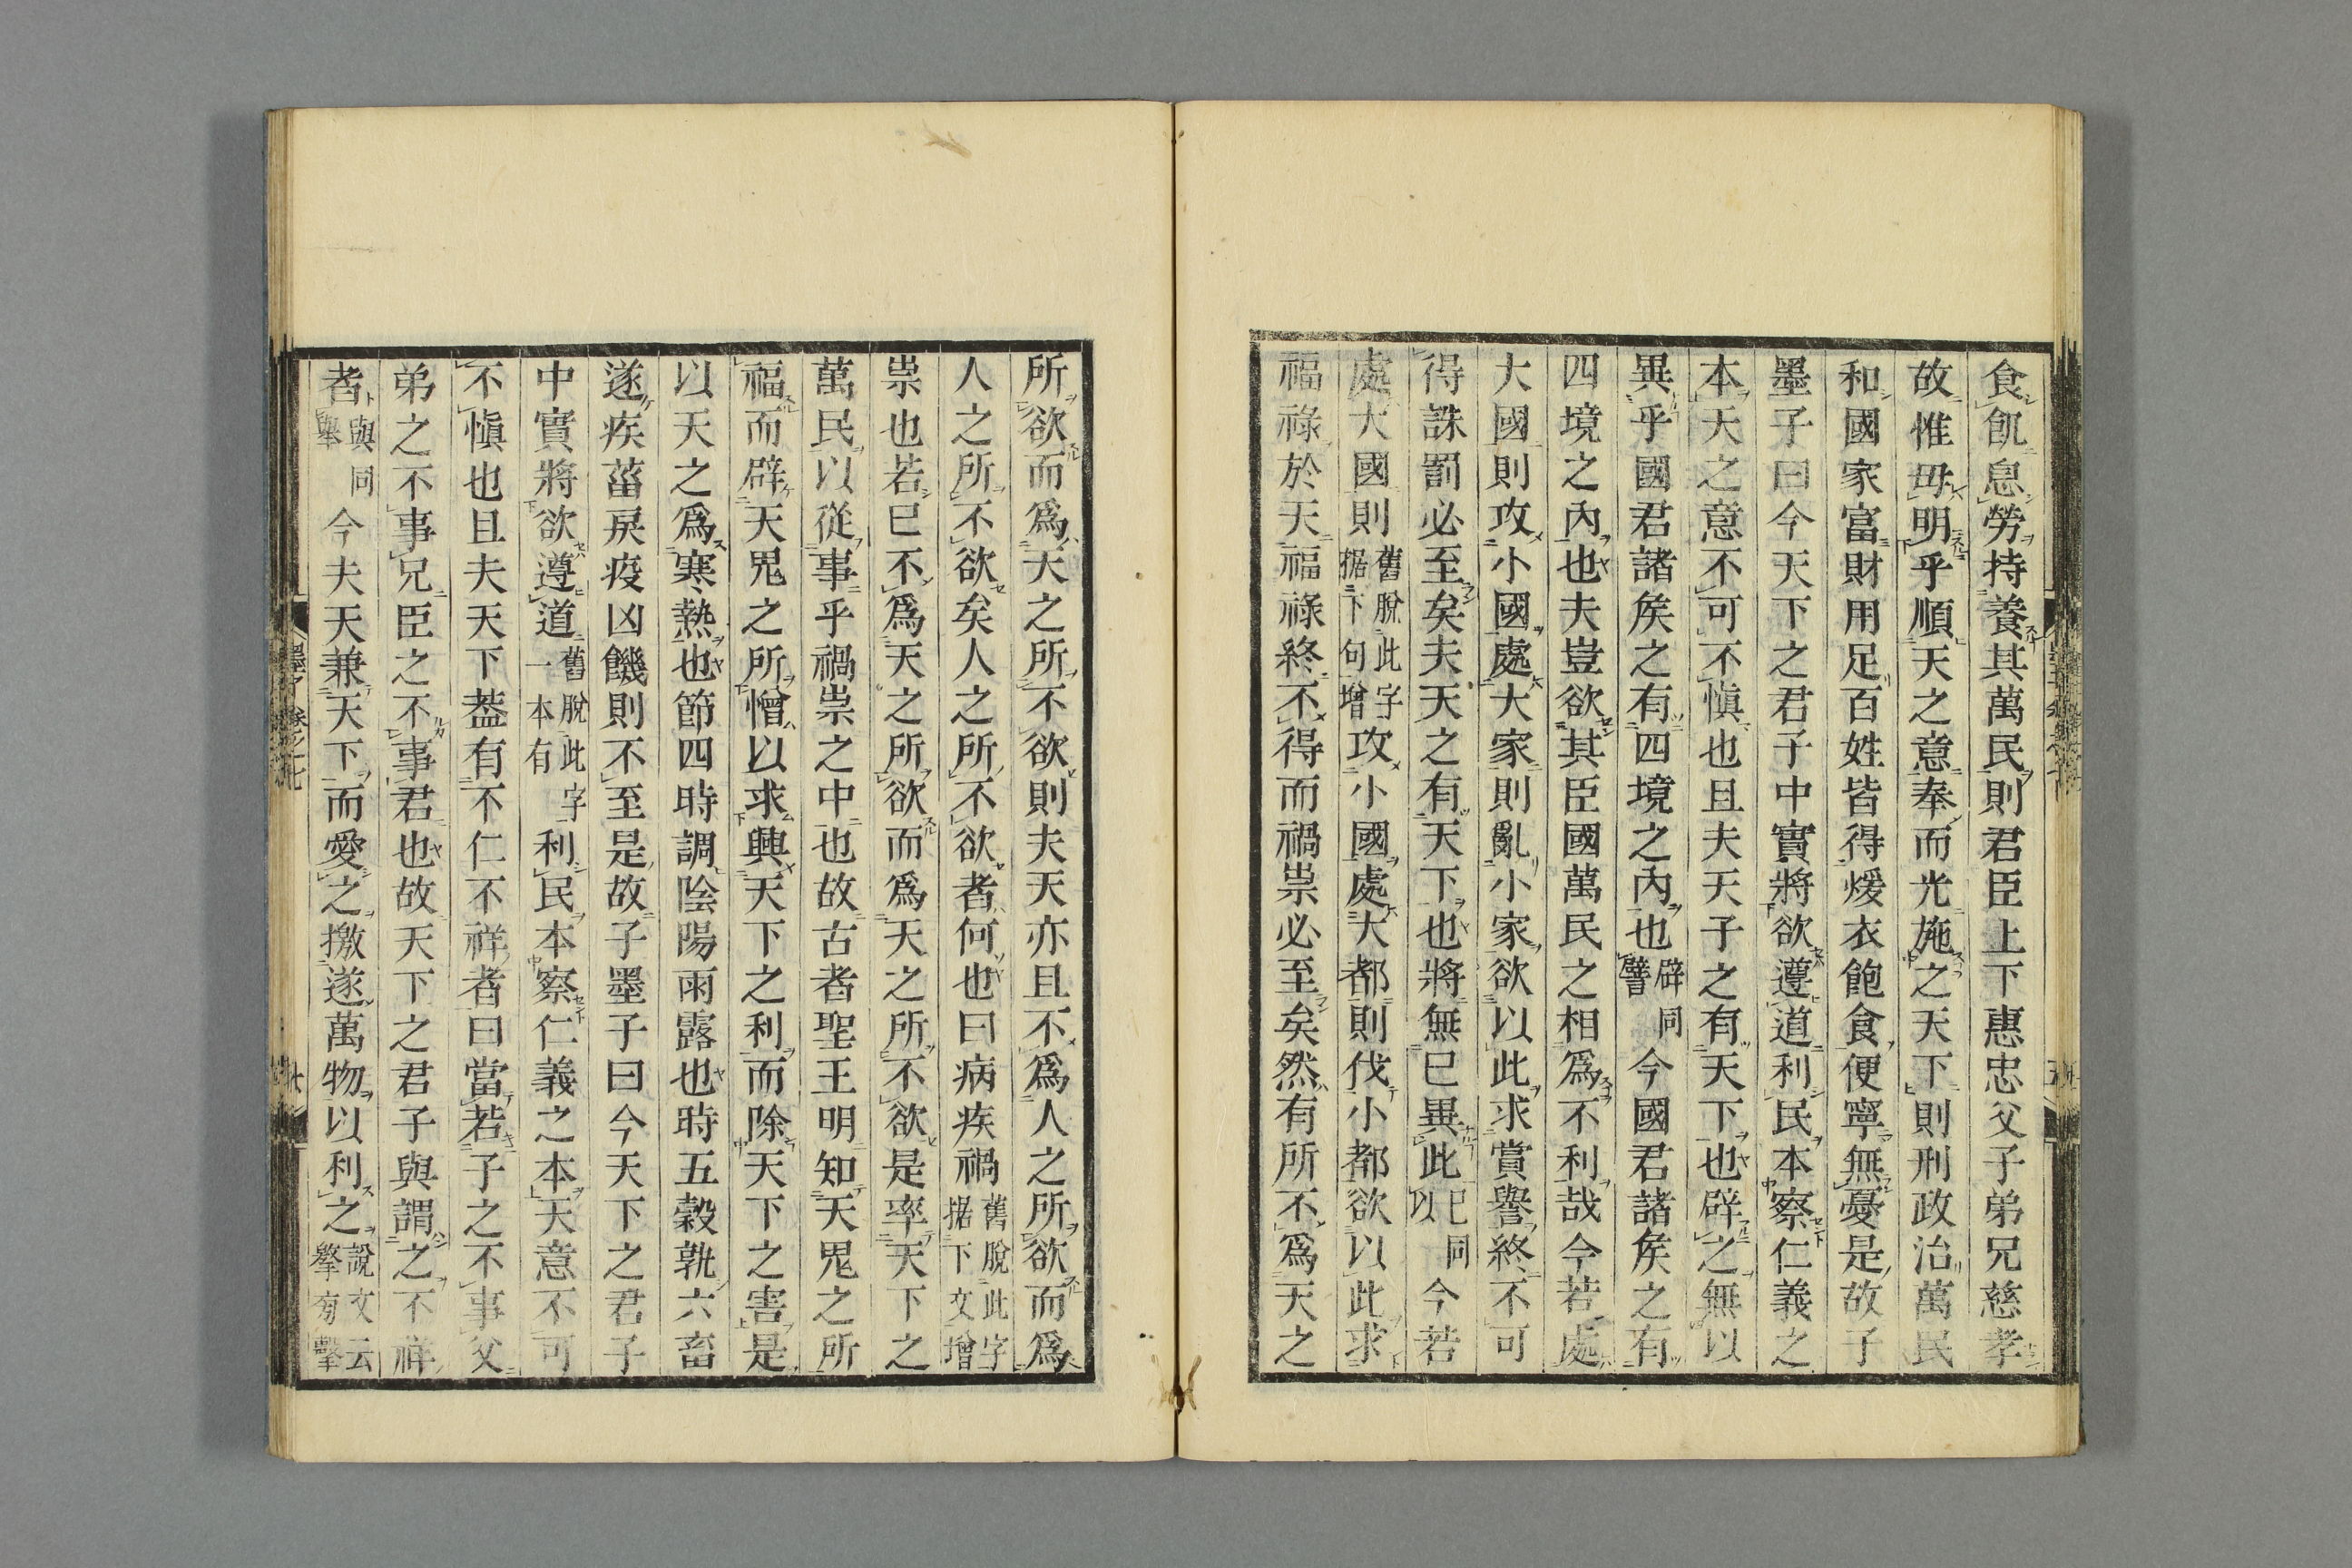 食飢息勞持養其萬民則君臣上下惠忠父子弟兄慈孝
故惟毋明乎順天之意奉而光施之天下則刑政治萬民
和國家富財用足百姓皆得煖衣飽食便寧無憂是故子
墨子曰今天下之君子中實將欲遵道利民本察仁義之
本天之意不可不愼也且夫天子之有天下也辟之無以
異乎國君諸矦之有四境之內也辟同譬今國君諸矦之有
四境之內也夫豈欲其臣國萬民之相爲不利哉今若處
大國則攻小國處大家則亂小家欲以此求賞譽終不可
得誅罰必至矣夫天之有天下也將無已異此已同以今若
處大國則舊脫此字据下句增攻小國處大都則伐小都欲以此求
福祿於天福祿終不得而禍祟必至矣然有所不爲天之
所欲而爲天之所不欲則夫天亦且不爲人之所欲而爲
人之所不欲矣人之所不欲者何也曰病疾禍舊脫此字据下文增
祟也若已不爲天之所欲而爲天之所不欲是率天下之
萬民以從事乎禍祟之中也故古者聖王明知天鬼之所
福而辟天鬼之所憎以求興天下之利而除天下之害是
以天之爲寒熱也節四時調陰陽雨露也時五穀孰六畜
遂疾菑戾疫凶饑則不至是故子墨子曰今天下之君子
中實將欲遵道舊脫此字一本有利民本察仁義之本天意不可
不愼也且夫天下葢有不仁不祥者曰當若子之不事父
弟之不事兄臣之不事君也故天下之君子與謂之不祥
者與同舉今夫天兼天下而愛之撽遂萬物以利之說文云擎有擊
墨子 卷之七 六